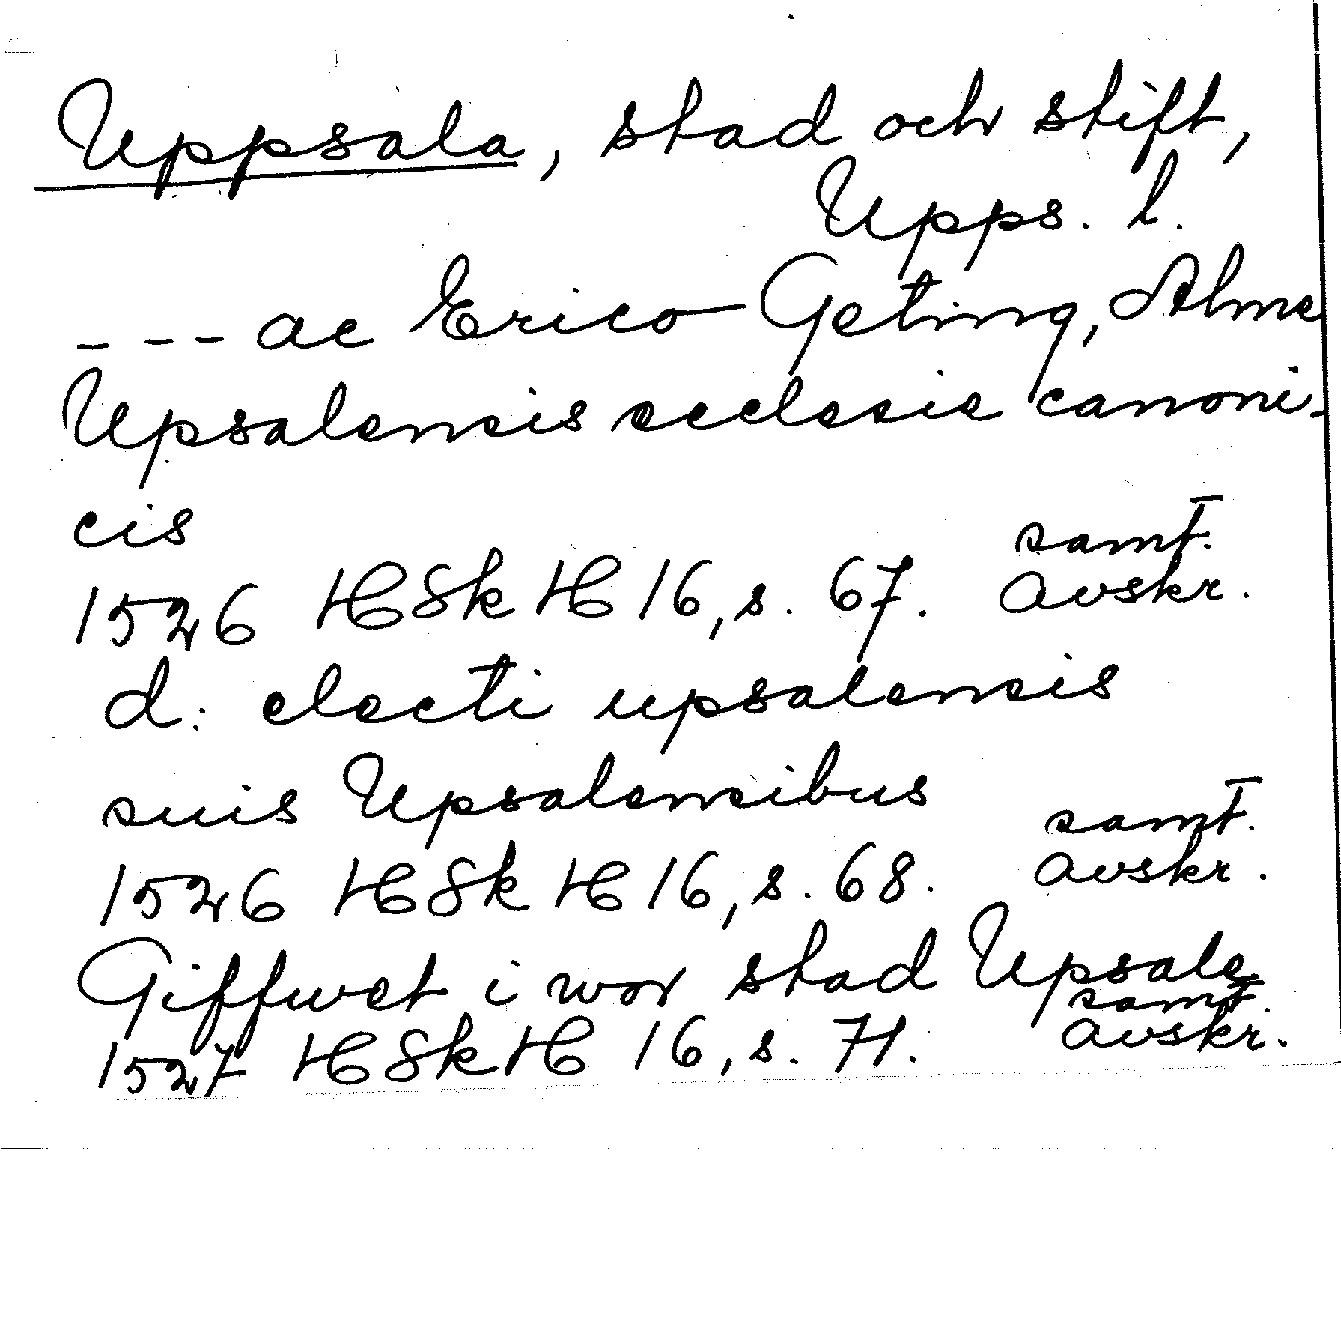 Uppsala, stad och stift,
Upps. l.
- - - ac Erico Geting, Alme
Upsalensis ecclesie canoni-
cis
samt.
1526 HSkH 16, s. 67. avskr.
d: electi upsalensis
suis Upsalensibus
samt.
1526 HSkH 16, s. 68. avskr.
Giffwet i wor stad Upsale
samt.
1527 HSkH 16, s. 71. avskr.